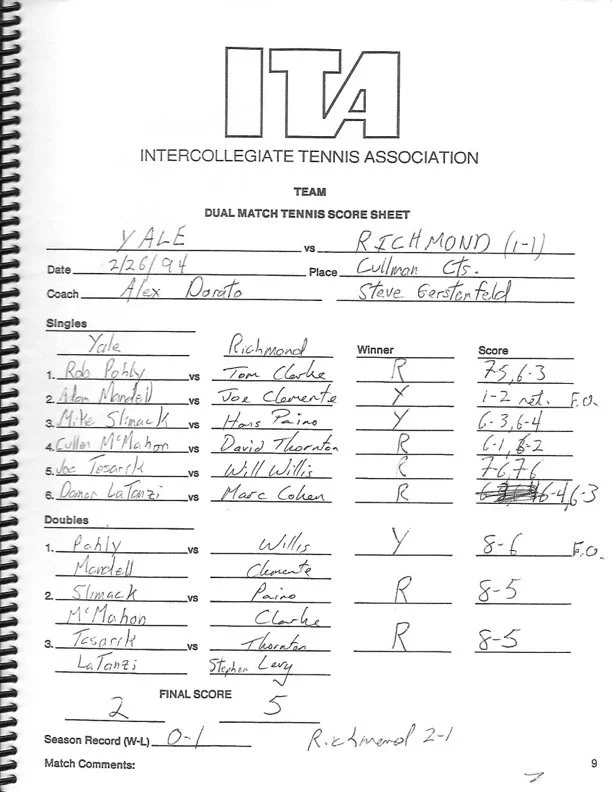 ITA
INTERCOLLEGIATE TENNIS ASSOCIATION
TEAM
DUAL MATCH TENNIS SCORE SHEET
YALE vs RICHMOND (1-1)
Date 2/26/94 Place Cullman Cts.
Coach Alex Dorato Steve Gerstenfeld
Singles
Yale Richmond Winner Score
1. Rob Pohly vs Tom Clarke R 7-5, 6-3
2. Adam Mandell vs Joe Clemente Y 1-2 ret. F.O.
3. Mike Slimack vs Hans Paino Y 6-3, 6-4
4. Cullen McMahon vs David Thornton R 6-1, 6-2
5. Joe Tesarik vs Will Willis R 7-6, 7-6
6. Damon LaTanzi vs Marc Cohen R 6-4, 6-3
Doubles
1. Pohly vs Willis Y 8-6 F.O.
Mandell Clemente
2. Slimack vs Paino R 8-5
McMahon Clarke
3. Tesarik vs Thornton R 8-5
LaTanzi Stephen Levy
FINAL SCORE
2 5
Season Record (W-L) 0-1 Richmond 2-1
Match Comments: 9